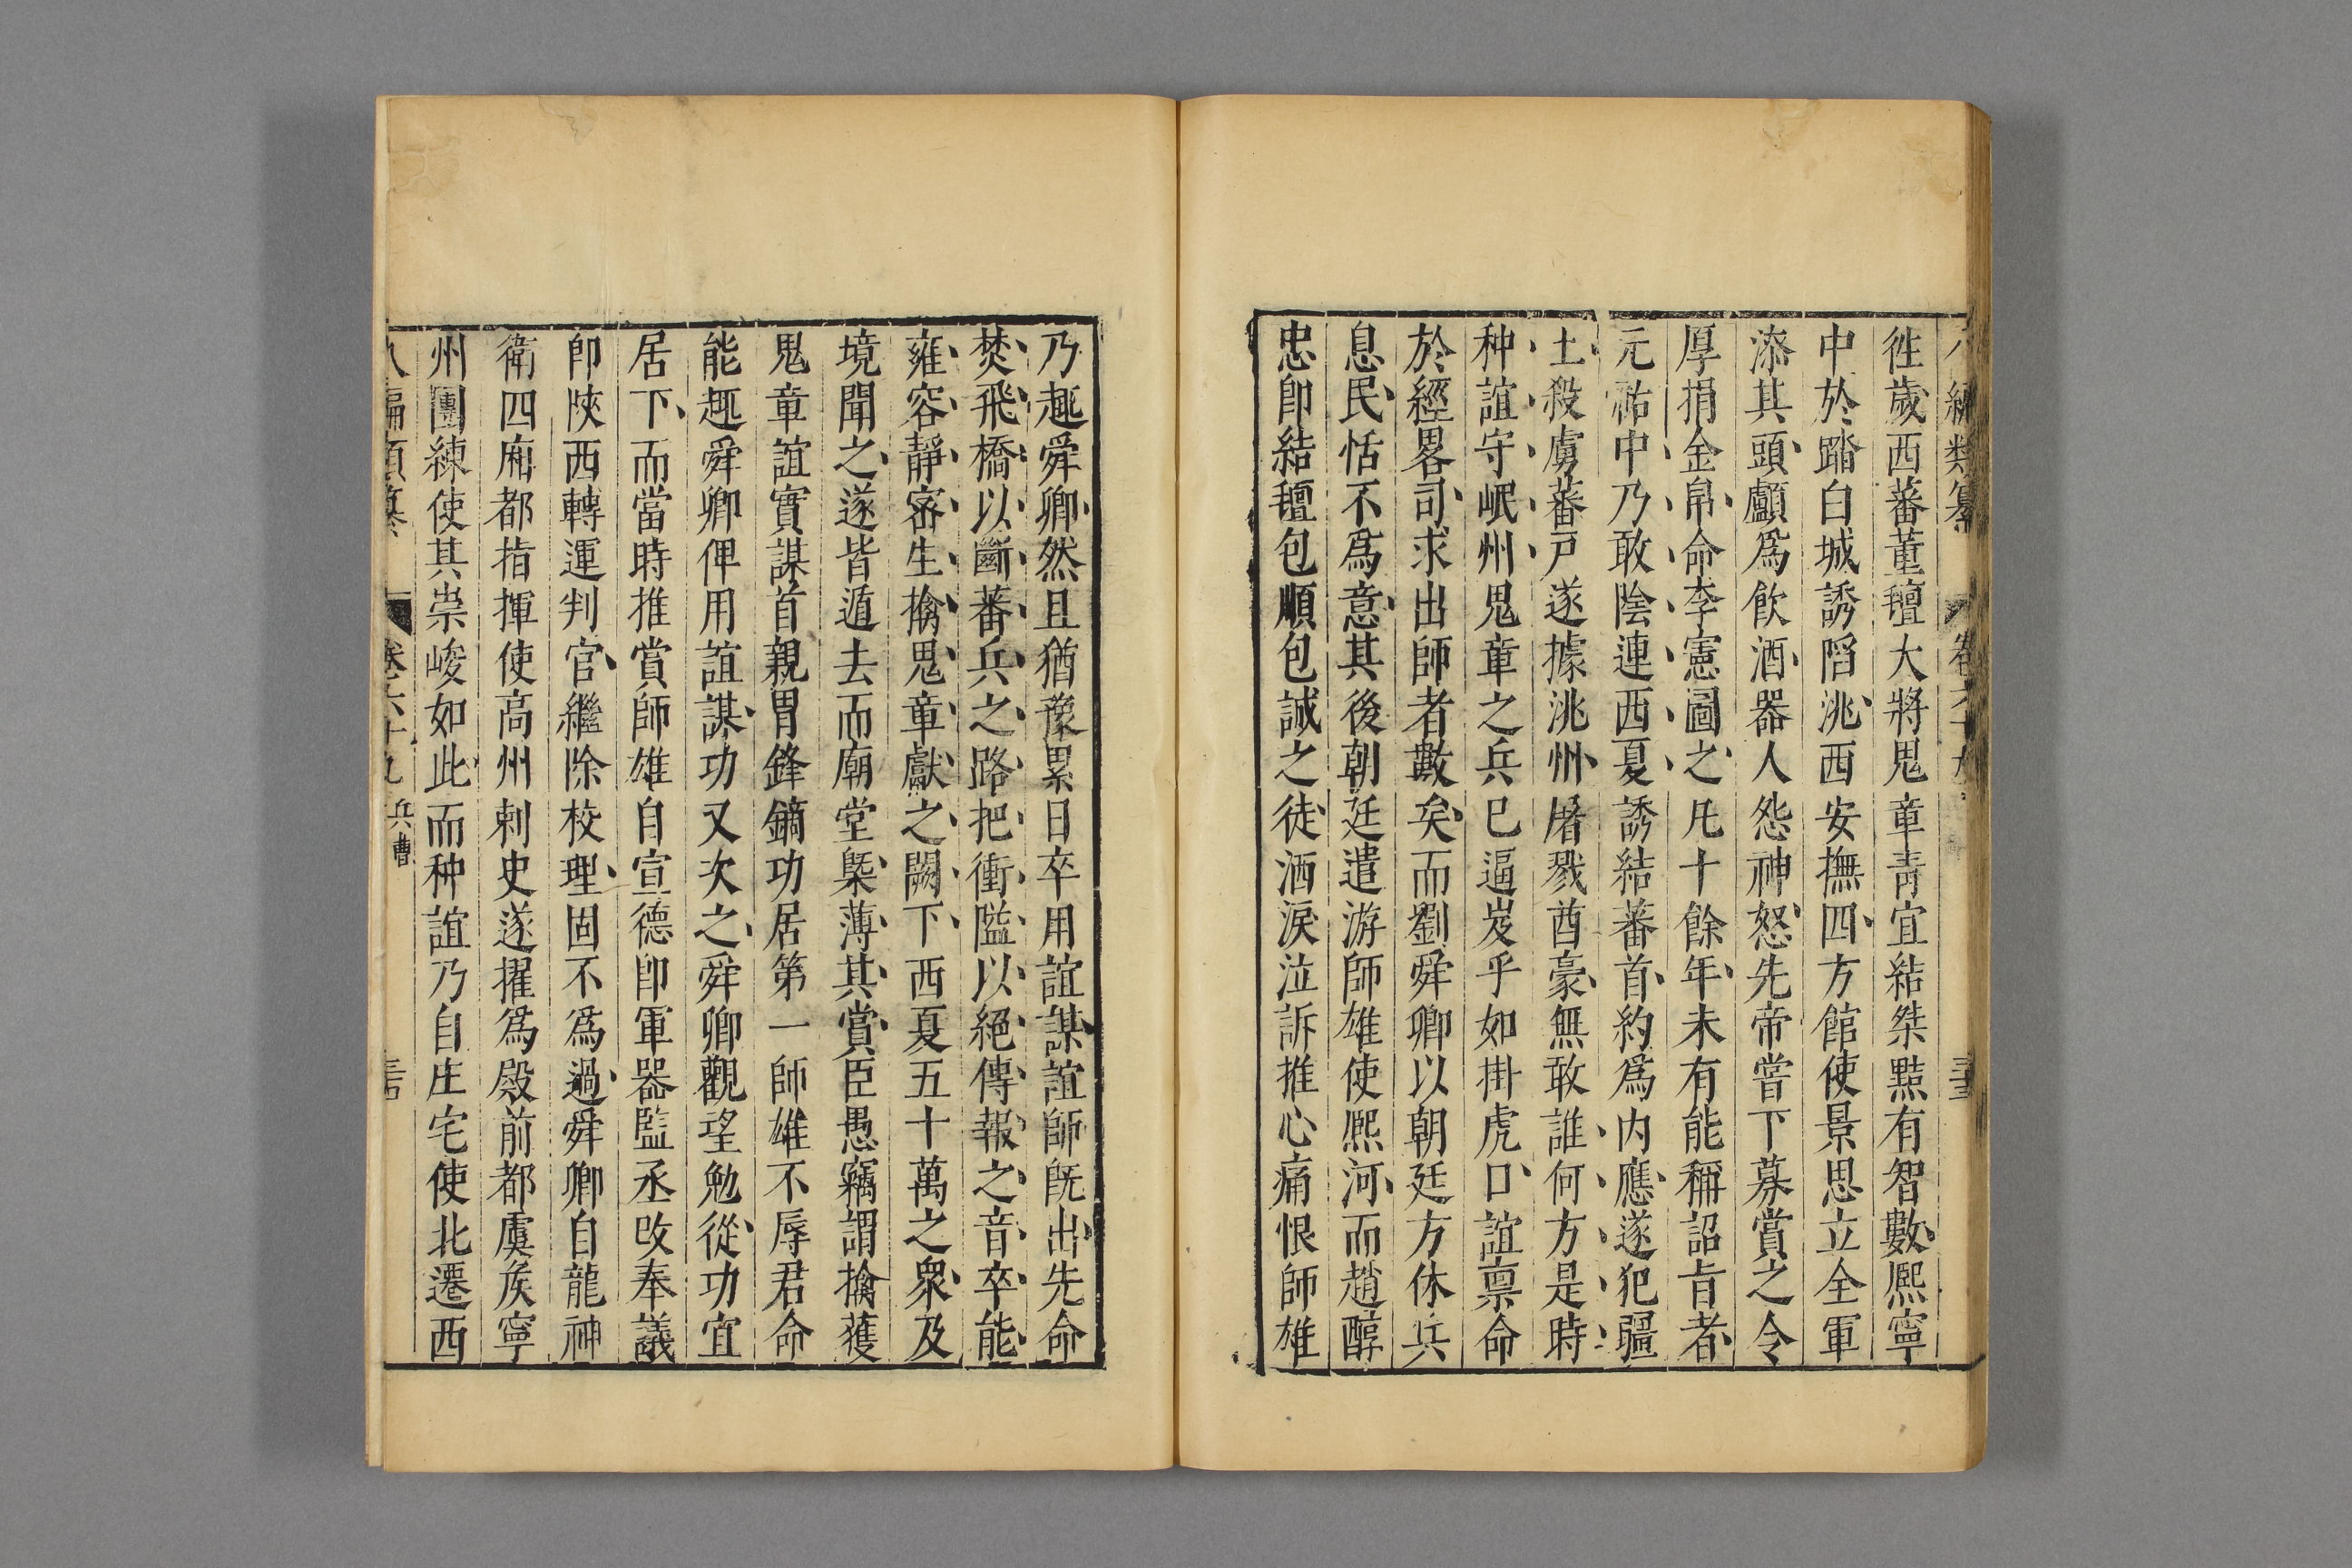 徃歲西蕃董氊大將鬼章青宜結桀黠有智數熈寧
中於踏白城誘陷洮西安撫四方館使景思立全軍
漆其頭顱爲飲酒器人怨神怒先帝嘗下募賞之令
厚捐金帛命李憲圖之凡十餘年未有能稱詔旨者
元祐中乃敢陰連西夏誘結蕃首約爲内應遂犯疆
土殺虜蕃戸遂據洮州屠戮酋豪無敢誰何方是時
种誼守岷州鬼章之兵已逼岌乎如掛虎口誼禀命
於經畧司求出師者數矣而劉舜卿以朝廷方休兵
息民恬不爲意其後朝廷遣游師雄使熈河而趙醇
忠卽結氊包順包誠之徒洒淚泣訴推心痛恨師雄
乃趣舜卿然且猶豫累日卒用誼謀誼師既出先命
焚飛橋以斷蕃兵之路把衝隘以絕傳報之音卒能
雍容靜密生擒鬼章獻之闕下西夏五十萬之衆及
境聞之遂皆遁去而廟堂槩薄其賞臣愚竊謂擒獲
鬼章誼實謀首親冒鋒鏑功居第一師雄不辱君命
能趣舜卿俾用誼謀功又次之舜卿觀望勉從功宜
居下而當時推賞師雄自宣德卽軍器監丞改奉議
卽陜西轉運判官繼除校理固不爲過舜卿自龍神
衛四廂都指揮使高州刺史遂擢爲殿前都虞矦寧
州團練使其崇峻如此而种誼乃自庄宅使北遷西
八編類纂 卷六十九 兵曹